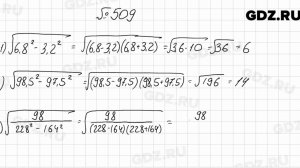 GDZ.RU
№509
) √(6,8² - 3,2²) = √((6,8-3,2)(6,8+3,2)) = √(3,6·10) = √36 = 6
) √(98,5² - 97,5²) = √((98,5-97,5)(98,5+97,5)) = √196 = 14
) √(98/(228² - 164²)) = √(98/((228-164)(228+164))) = 98
GDZ.RU